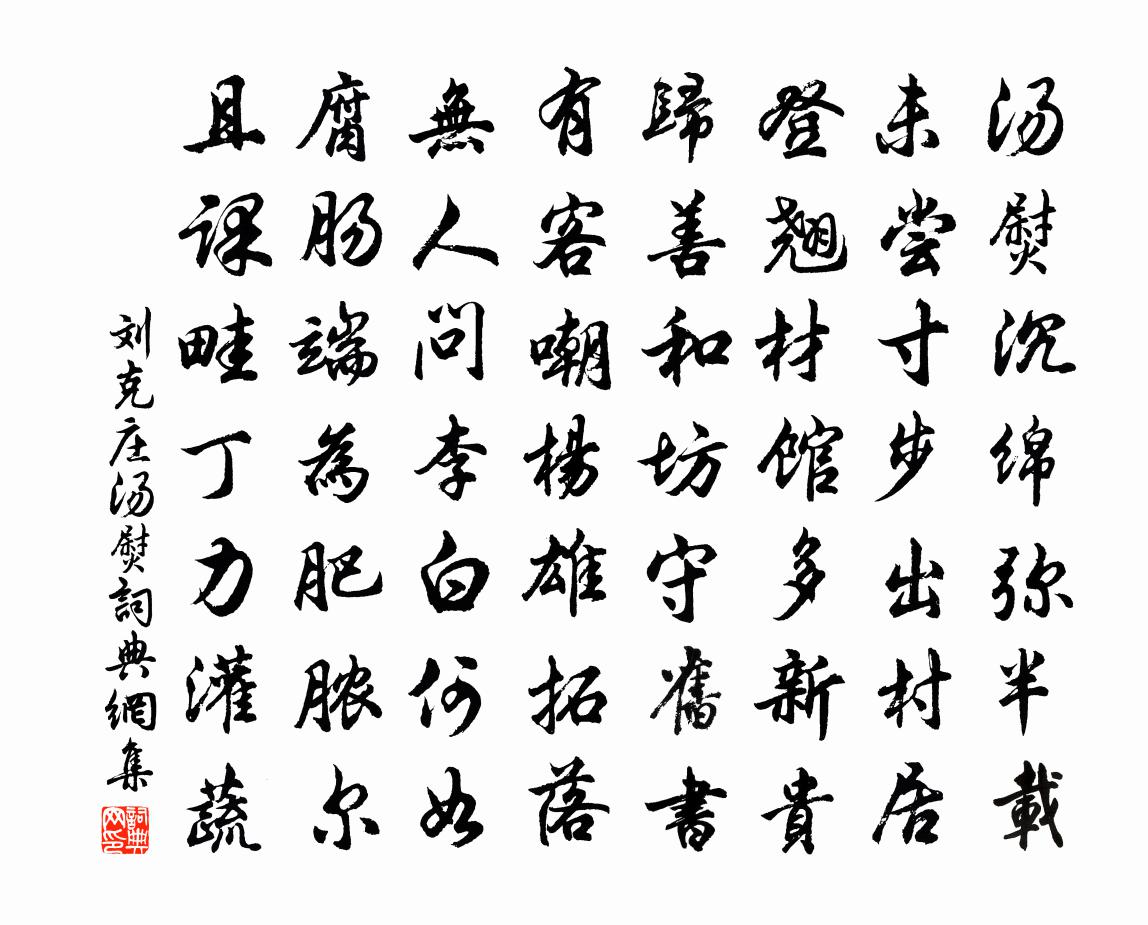 汤熨沉绵弥半載
未尝寸步出村居
登翘材馆多新貴
歸善和坊守舊書
有客嘲楊雄拓落
無人问李白何如
腐肠端為肥脓尔
且课畦丁力灌蔬
刘克庄汤熨詞典網集
詞典网印